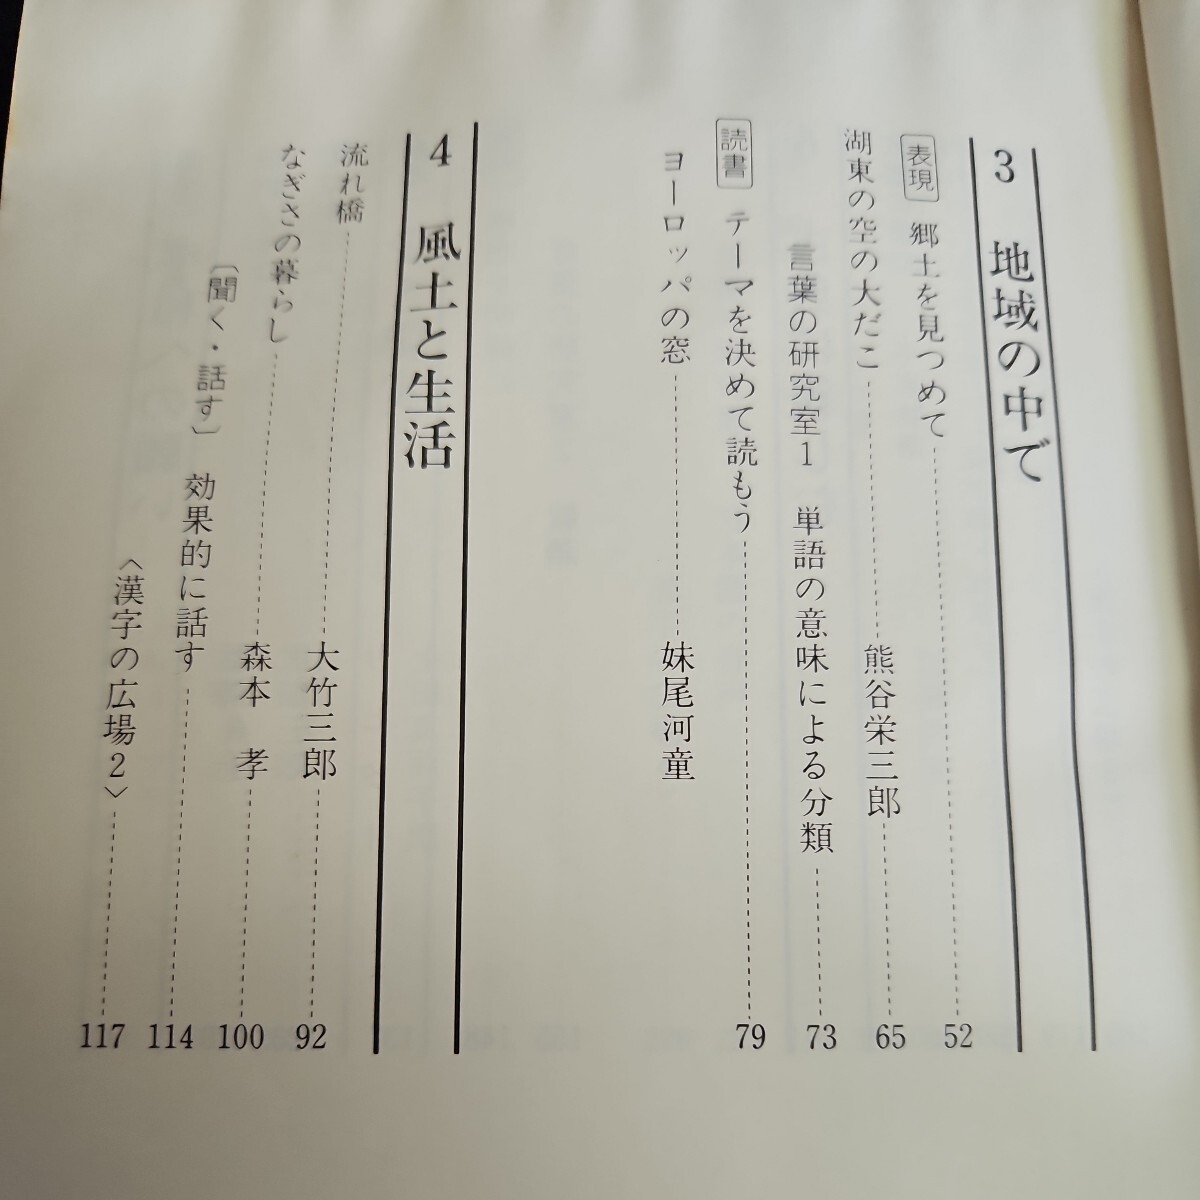 3 地域の中で
表現 郷土を見つめて 52
湖東の空の大だこ 熊谷栄三郎 65
言葉の研究室1 単語の意味による分類 73
読書 テーマを決めて読もう 79
ヨーロッパの窓 妹尾河童
4 風土と生活
流れ橋 大竹三郎 92
なぎさの暮らし 森本 孝 100
〔聞く・話す〕 効果的に話す 114
〈漢字の広場2〉 117